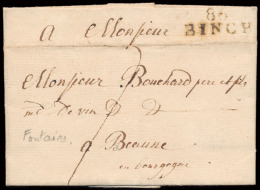 à Monsieur
86
BINCH
Monsieur Bouchard pere et fils
md de vin
Fontaine
à Beaune
en bourgogne